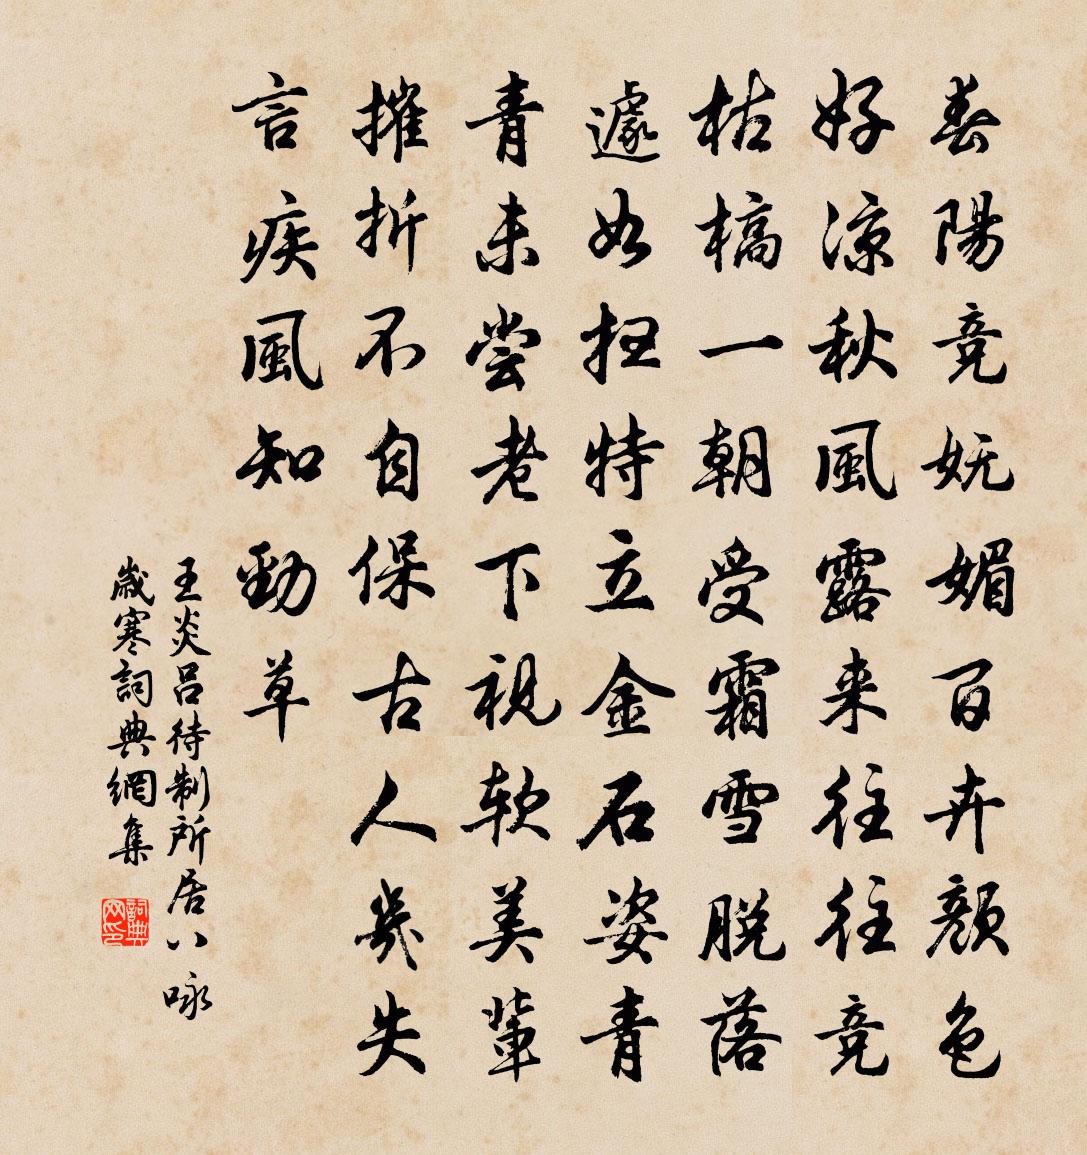 春陽竞妩媚百卉顏色
好涼秋風露来往往竞
枯槁一朝受霜雪脱落
遽如扫特立金石姿青
青未尝老下視软美輩
摧折不自保古人幾失
言疾風知勁草
王炎吕待制所居八咏
歲寒詞典網集
詞典网印